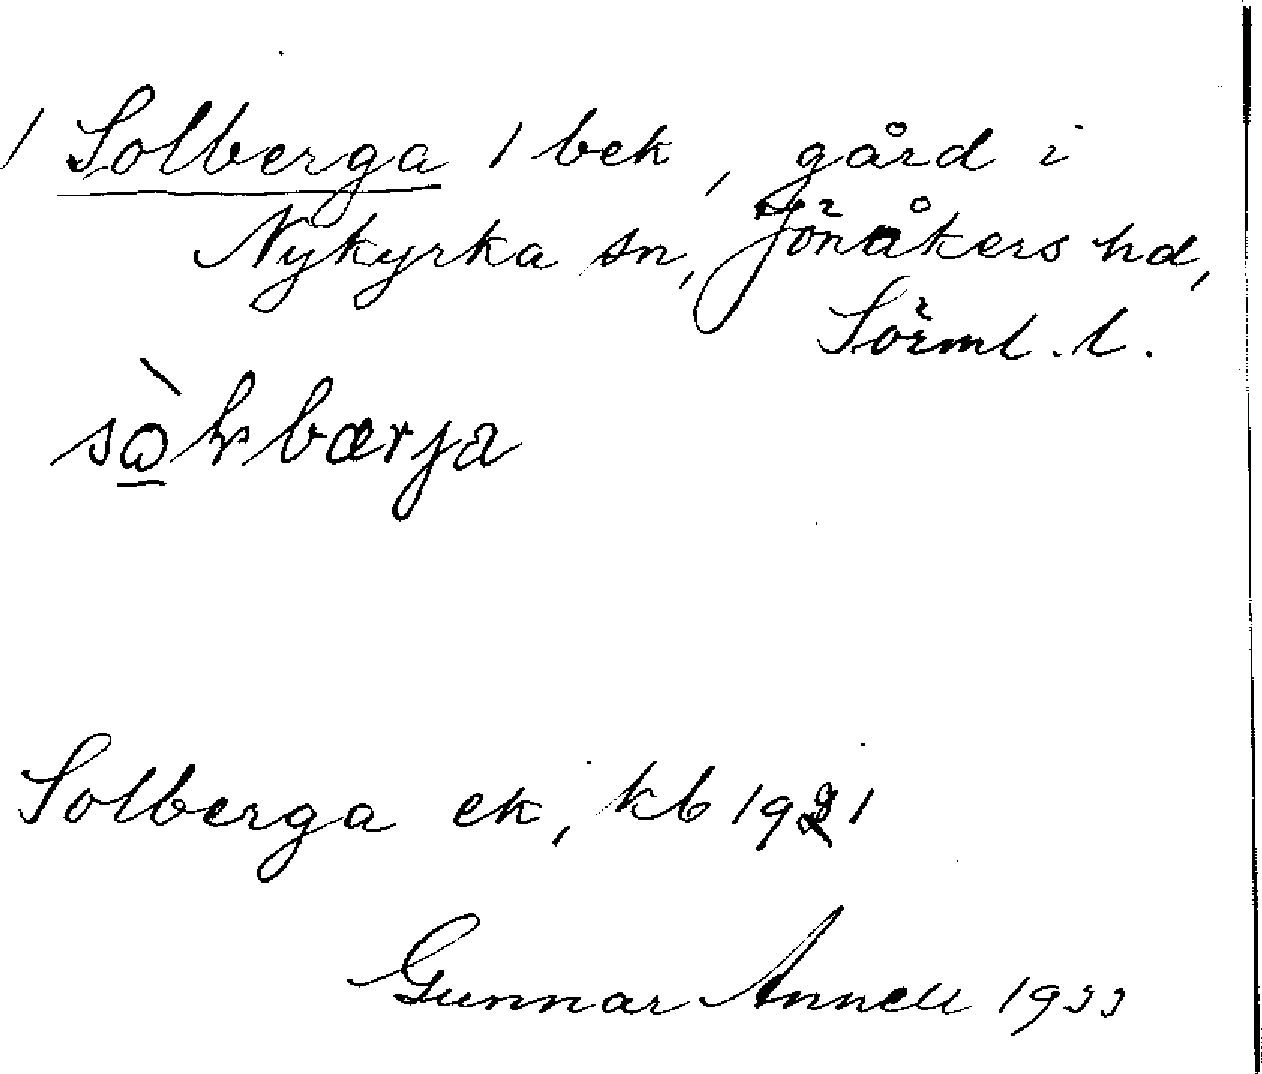 / Solberga 1 bek, gård i
Nykyrka sn, Jönåkers hd,
Sörml. l.
Solberga ek, kb 1921
Gunnar Annell 1933